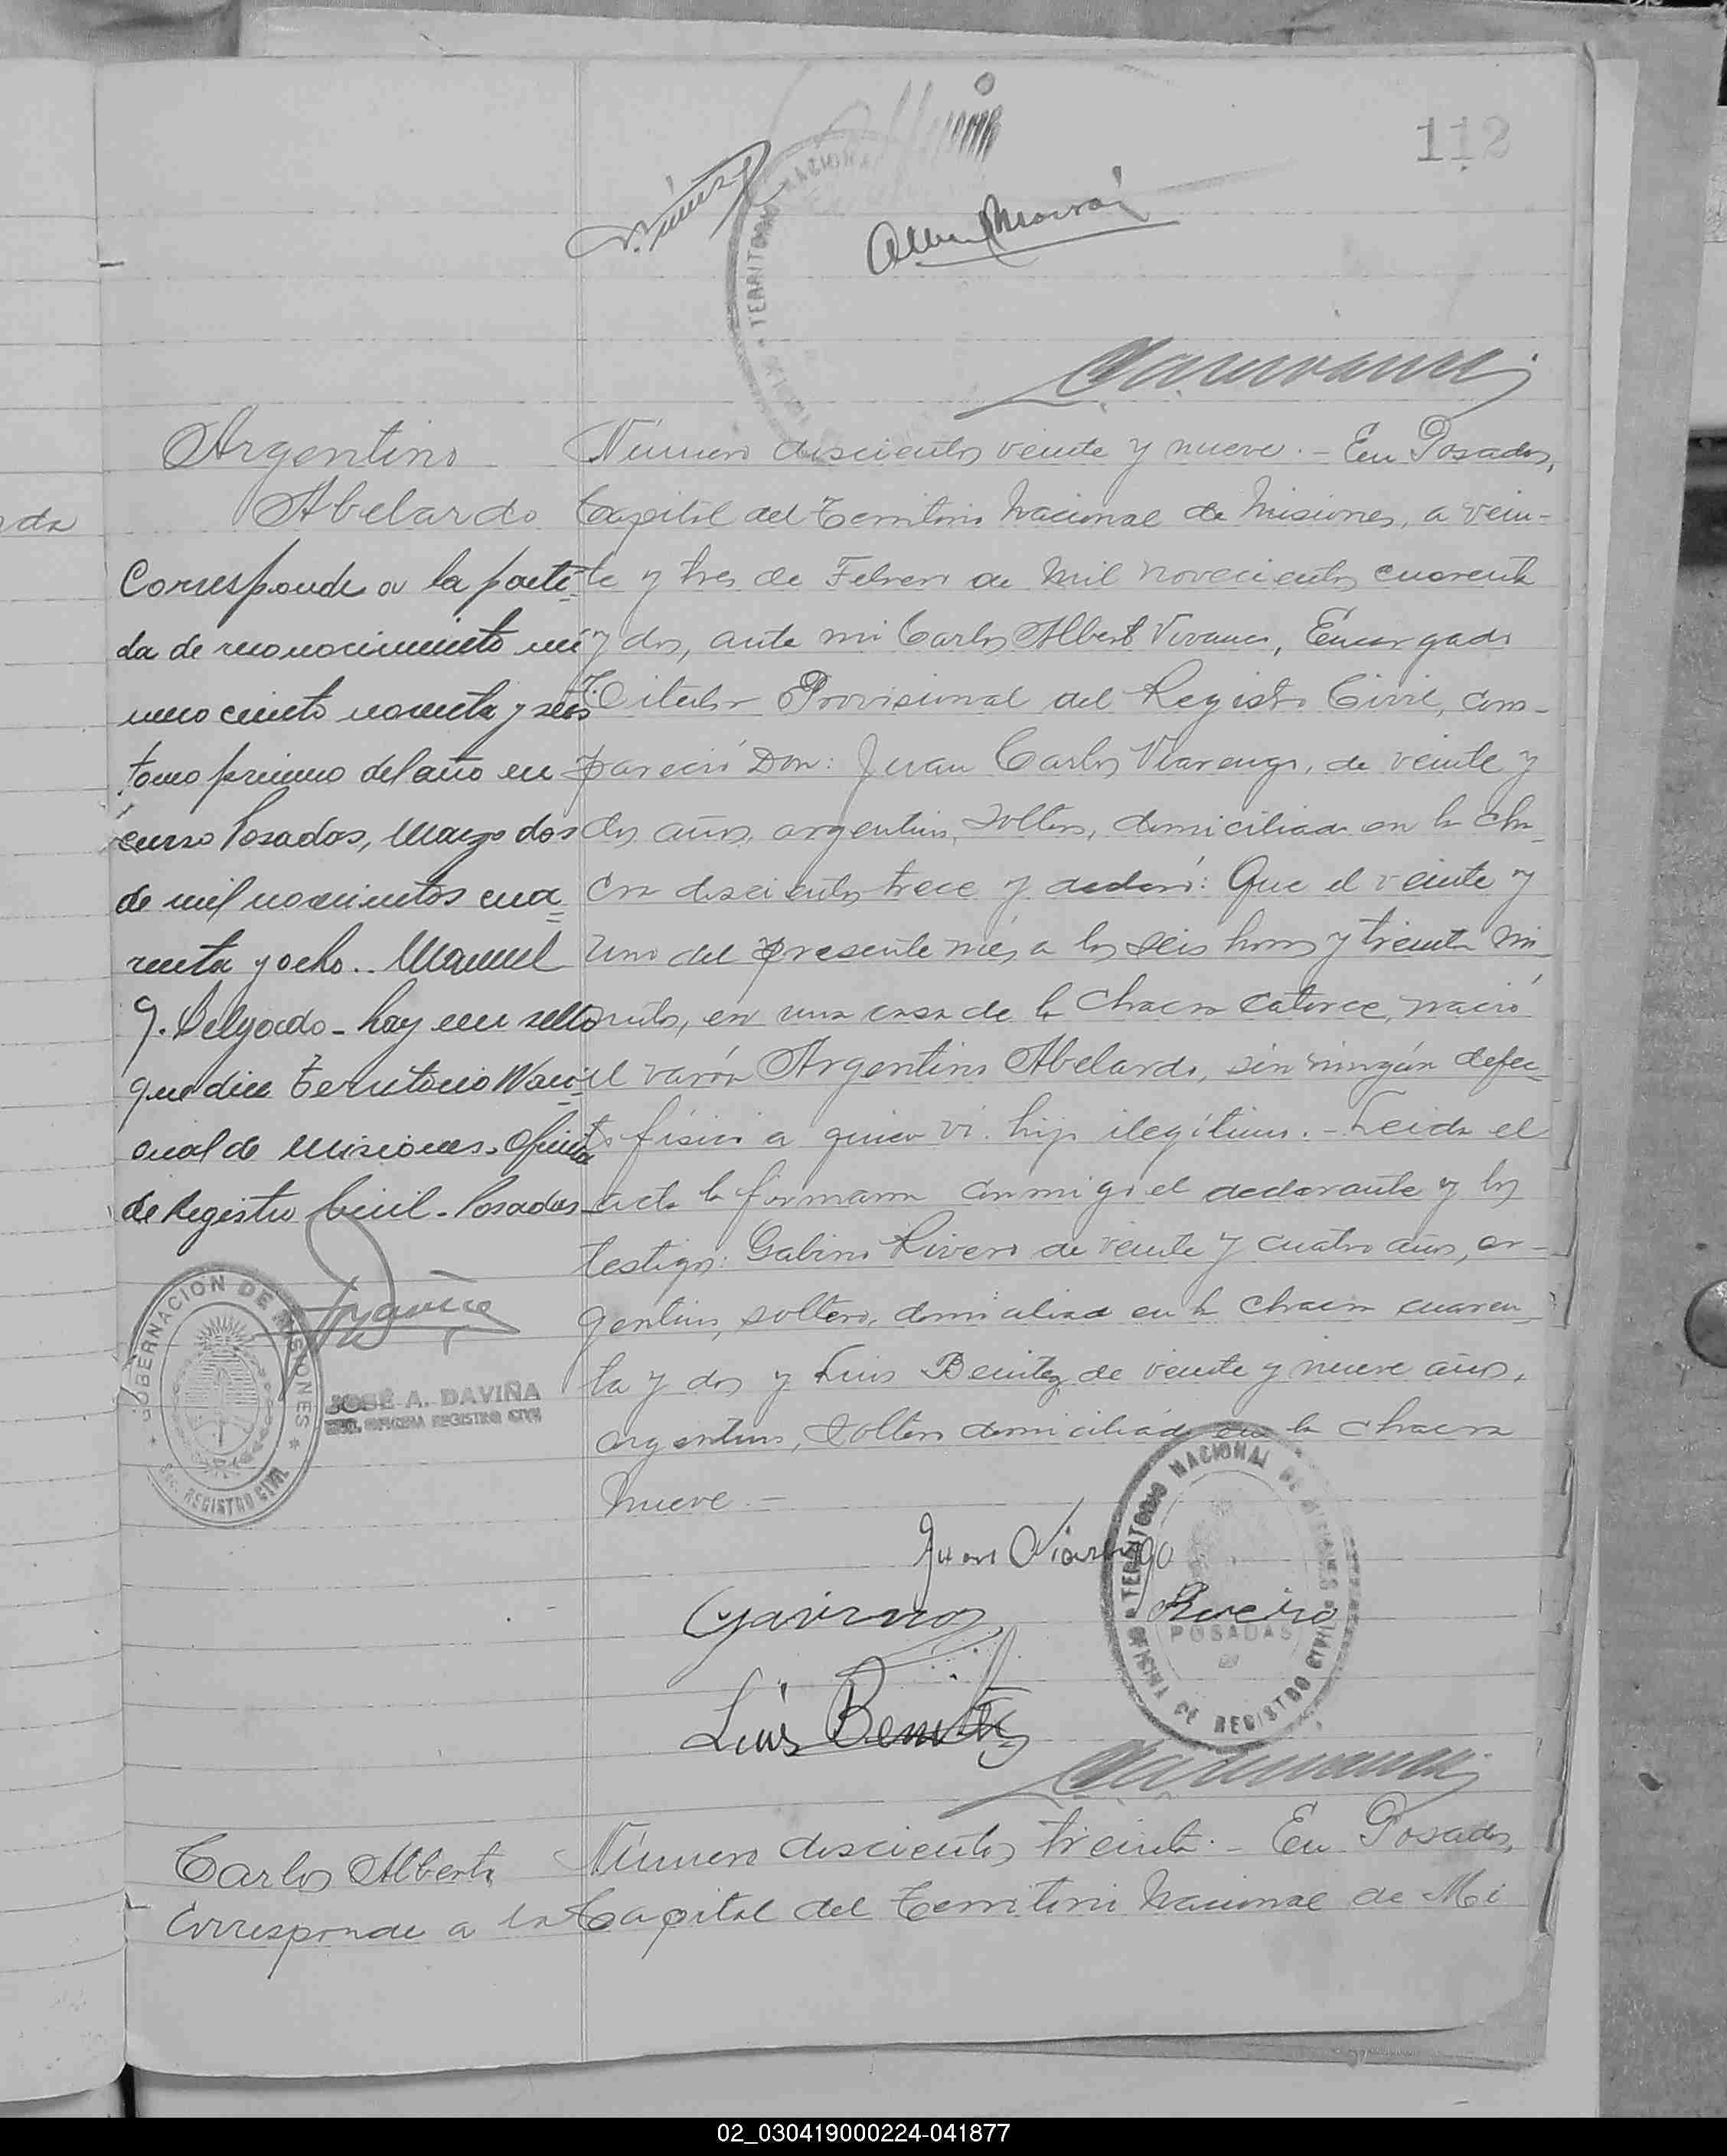 112
Argentino
Abelardo
Corresponde a la parti=
da de reconocimiento nú
mero ciento noventa y seis
tomo primero del año en
curso Posadas, Marzo dos
de mil novecientos cua=
renta y ocho.. Manuel
G. Delgado - hay un sello
que dice Territorio Naci=
onal de Misiones. Oficina
de Registro Civil. Posadas
GOBERNACION DE MISIONES
REGISTRO CIVIL
JOSÉ A. DAVIÑA
OFICINA REGISTRO CIVIL
Número discientos veinte y nueve. - En Posadas,
Capital del Territorio Nacional de Misiones, a vein-
te y tres de Febrero de mil novecientos cuarenta
y dos, ante mi Carlos Albert Vivanco, Encargado
Titular Provisional del Registro Civil, com-
pareció Don: Juan Carlos Viarengo, de veinte y
dos años, argentino, soltero, domiciliado en la cha-
cra discientos trece y declaró: Que el veinte y
uno del presente més, a las seis horas y treinta mi-
nutos, en una casa de la chacra catorce, nació
el varón Argentino Abelardo, sin ningún defec-
to físico a quien vi. hijo ilegítimo. - Leida el
acta la firmaron conmigo el declarante y los
testigos: Gabino Rivero de veinte y cuatro años, ar-
gentino, soltero, domiciliado en la chacra cuaren-
ta y dos y Luis Benitez de veinte y nueve años,
argentino, soltero domiciliado en la chacra
nueve. -
Juan Viarengo
Gavino Rivero
Luis Benitez
TERRITORIO NACIONAL DE MISIONES
POSADAS
OFICINA DE REGISTRO CIVIL
Carlos Alberto
Corresponde a la
Número discientos treinta. - En Posadas,
Capital del Territorio Nacional de Mi
02_030419000224-041877